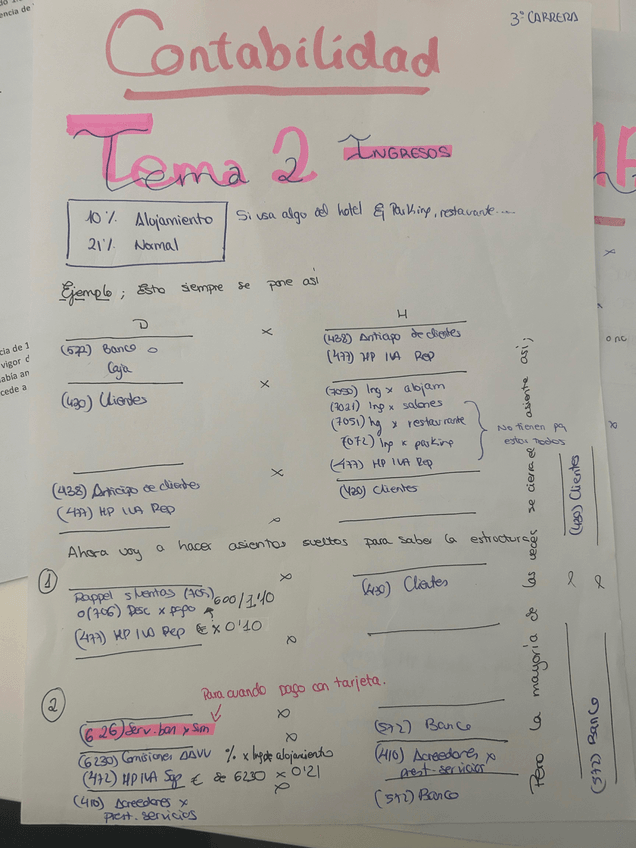 3º CARRERA
Contabilidad
Tema 2 INGRESOS
10% Alojamiento
21% Normal
Si usa algo del hotel Ej Parking, restaurante...
Ejemplo; Esto siempre se pone así
D x H
(572) Banco o
Caja
(438) Anticipo de clientes
(477) HP IVA Rep
x
(430) Clientes
(7050) Ing x alojam
(7021) Inp x salones
(7051) Ing x restaurante
7072) Inp x parking
(477) HP IVA Rep
No tienen pq
estar todos
x
(438) Anticipo de clientes
(477) HP IVA Rep
(430) Clientes
x
Ahora voy a hacer asientos sueltos para saber la estructura
1
x
Rappel s/ventas (709)
o (706) Desc x papo 600/1'10
(477) HP IVA Rep € x 0'10
(430) Clientes
x
2
Para cuando pago con tarjeta.
x
(626) Serv. ban x sim
(572) Banco
x
(6230) Comisiones AAVV % x Ing de alojamiento
(472) HP IVA Sop € de 6230 x 0'21
(410) Acreedores x
prest. servicios
x
(410) Acreedores x
prest. servicios
(572) Banco
Pero la mayoría de las veces se cierra el asiento así;
(430) Clientes
(572) Banco
encia de
cia de 1
vigor d
abía an
cede a